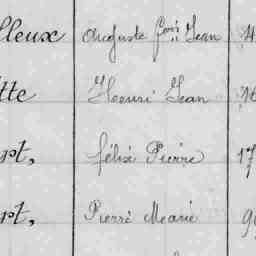 lleux Auguste Jean 4
tte Henri Jean 16
rt, félix Pierre 17
rt, Pierre Marie 9